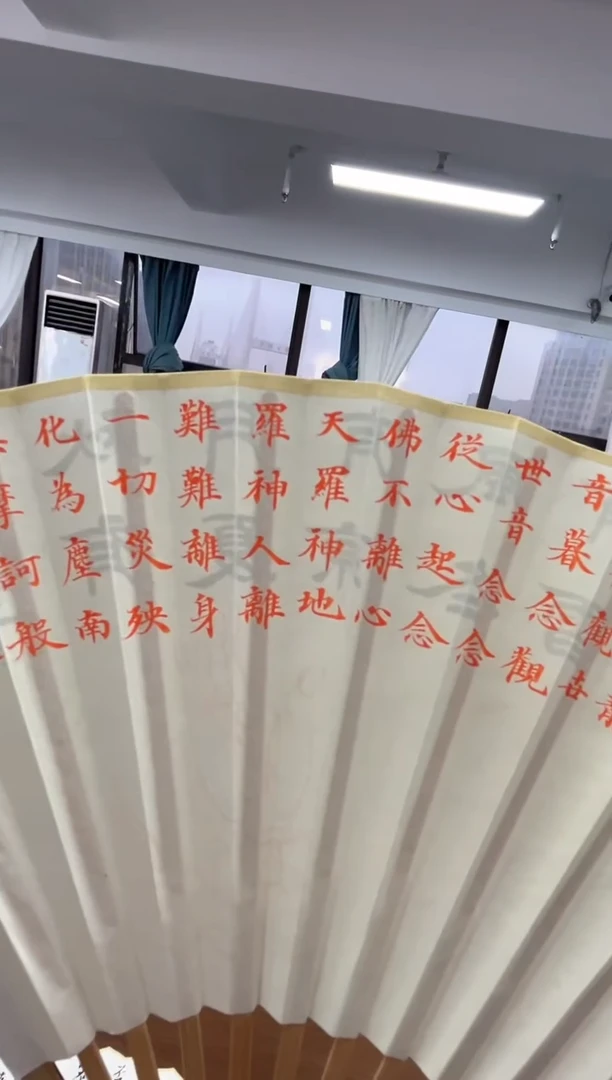 音
觀世
音暮念觀
世音念念
從心起念
佛不離心
天羅神地
羅神人離
難難離身
一切災殃
化為塵南
摩訶般